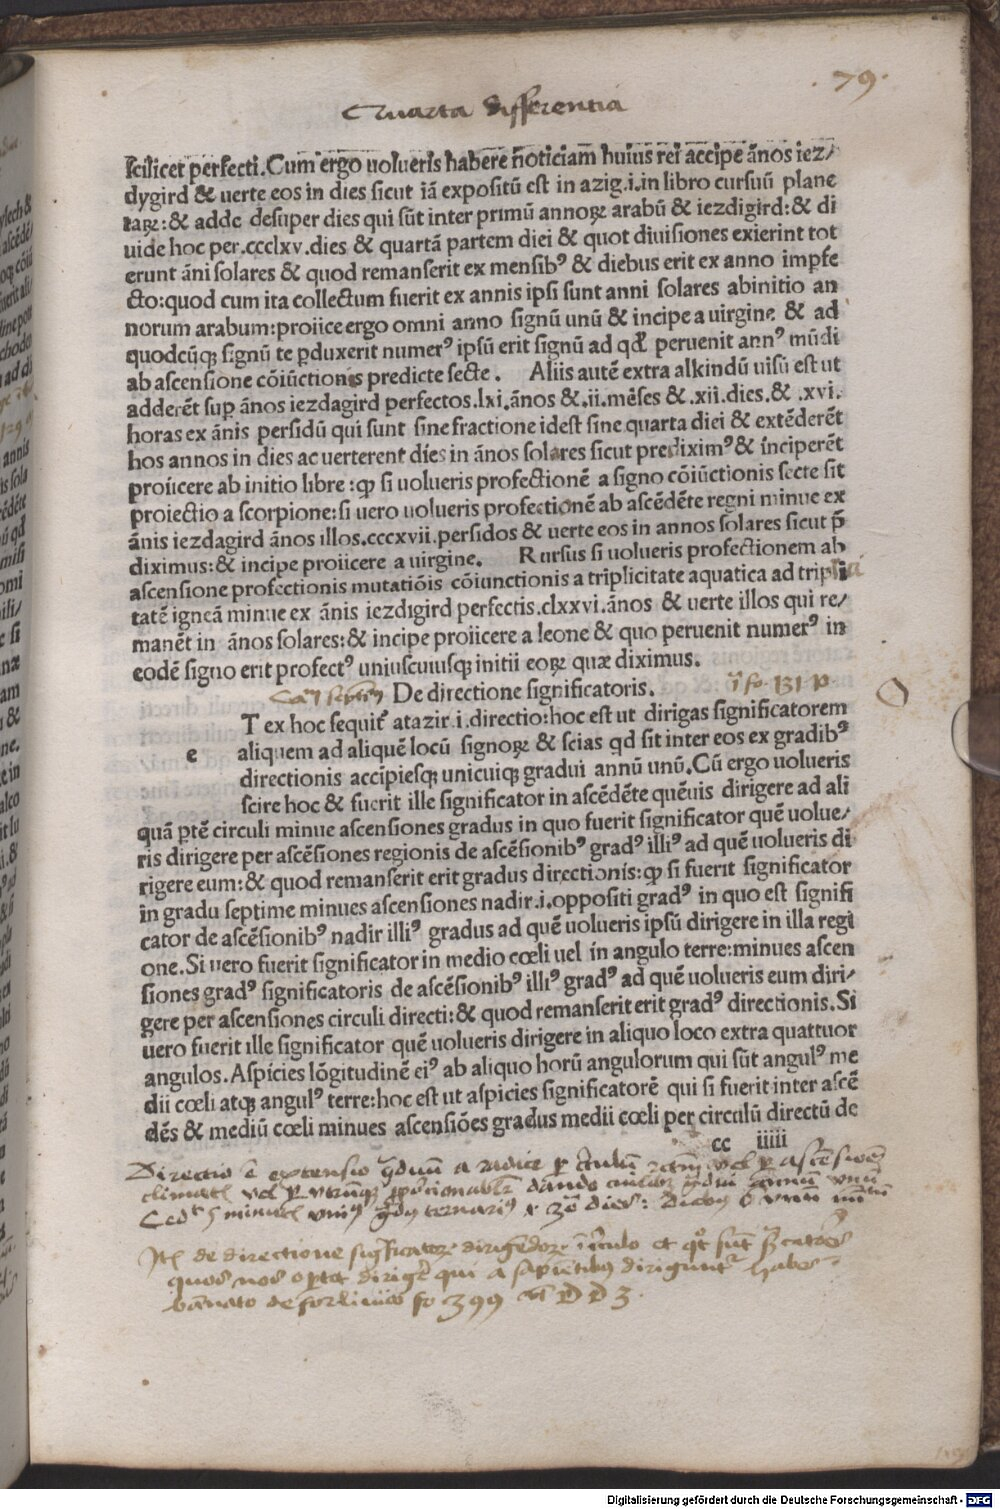 79.
Quarta differentia
scilicet perfecti. Cum ergo uolueris habere ñoticiam huius rei accipe ãnos iez/
dygird & uerte eos in dies sicut iã expositũ est in azig.i.in libro cursuũ plane
taꝝ: & adde desuper dies qui sũt inter primũ annoꝝ arabũ & iezdigird: & di
uide hoc per.ccclxv.dies & quartã partem diei & quot diuisiones exierint tot
erunt ãni solares & quod remanserit ex mensibꝰ & diebus erit ex anno impfe
cto: quod cum ita collectum fuerit ex annis ipsi sunt anni solares abinitio an
norum arabum: proiice ergo omni anno signũ unũ & incipe a uirgine & ad
quodcũqꝫ signũ te ꝑduxerit numerꝰ ipsũ erit signũ ad qđ peruenit annꝰ mũdi
ab ascensione cõiũctionis predicte secte. Aliis autẽ extra alkindũ uisũ est ut
adderẽt suꝑ ãnos iezdagird perfectos.lxi.ãnos &.ii.mẽses &.xii.dies.& .xvi.
horas ex ãnis persidũ qui sunt sine fractione idest sine quarta diei & extẽderẽt
hos annos in dies ac uerterent dies in ãnos solares sicut prediximꝰ & inciperẽt
proiicere ab initio libre: ꝙ si uolueris profectionẽ a signo cõiũctionis secte sit
proiectio a scorpione: si uero uolueris profectionẽ ab ascẽdẽte regni minue ex
ãnis iezdagird ãnos illos.cccxvii.persidos & uerte eos in annos solares sicut p̃
diximus: & incipe proiicere a uirgine. Rursus si uolueris profectionem ab
ascensione profectionis mutatiõis cõiunctionis a triplicitate aquatica ad tripli
tatẽ igneã minue ex ãnis iezdigird perfectis.clxxvi.ãnos & uerte illos qui re/
manẽt in ãnos solares: & incipe proiicere a leone & quo peruenit numerꝰ in
eodẽ signo erit profectꝰ uniuscuiusqꝫ initii eoꝝ quæ diximus.
De directione significatoris. fo. 131
T ex hoc sequit̃ atazir.i.directio: hoc est ut dirigas significatorem
e aliquem ad aliquẽ locũ signoꝝ & scias qd sit inter eos ex gradibꝰ
directionis accipiesqꝫ unicuiqꝫ gradui annũ unũ. Cũ ergo uolueris
scire hoc & fuerit ille significator in ascẽdẽte quẽuis dirigere ad ali
quã ꝑtẽ circuli minue ascensiones gradus in quo fuerit significator quẽ uolue/
ris dirigere per ascẽsiones regionis de ascẽsionibꝰ gradꝰ illiꝰ ad quẽ uolueris di
rigere eum: & quod remanserit erit gradus directionis: ꝙ si fuerit significator
in gradu septime minues ascensiones nadir.i.oppositi gradꝰ in quo est signifi
cator de ascẽsionibꝰ nadir illiꝰ gradus ad quẽ uolueris ipsũ dirigere in illa regi
one. Si uero fuerit significator in medio cœli uel in angulo terre: minues ascen
siones gradꝰ significatoris de ascẽsionibꝰ illiꝰ gradꝰ ad quẽ uolueris eum diri/
gere per ascensiones circuli directi: & quod remanserit erit gradꝰ directionis. Si
uero fuerit ille significator quẽ uolueris dirigere in aliquo loco extra quattuor
angulos. Aspicies lõgitudinẽ eiꝰ ab aliquo horũ angulorum qui sũt angulꝰ me
dii cœli atqꝫ angulꝰ terre: hoc est ut aspicies significatorẽ qui si fuerit inter ascẽ
dẽs & mediũ cœli minues ascensiões gradus medii cœli per circulũ directũ de
cc iiiii
Directio ẽ extensio a radice
Digitalisierung gefördert durch die Deutsche Forschungsgemeinschaft - DFG